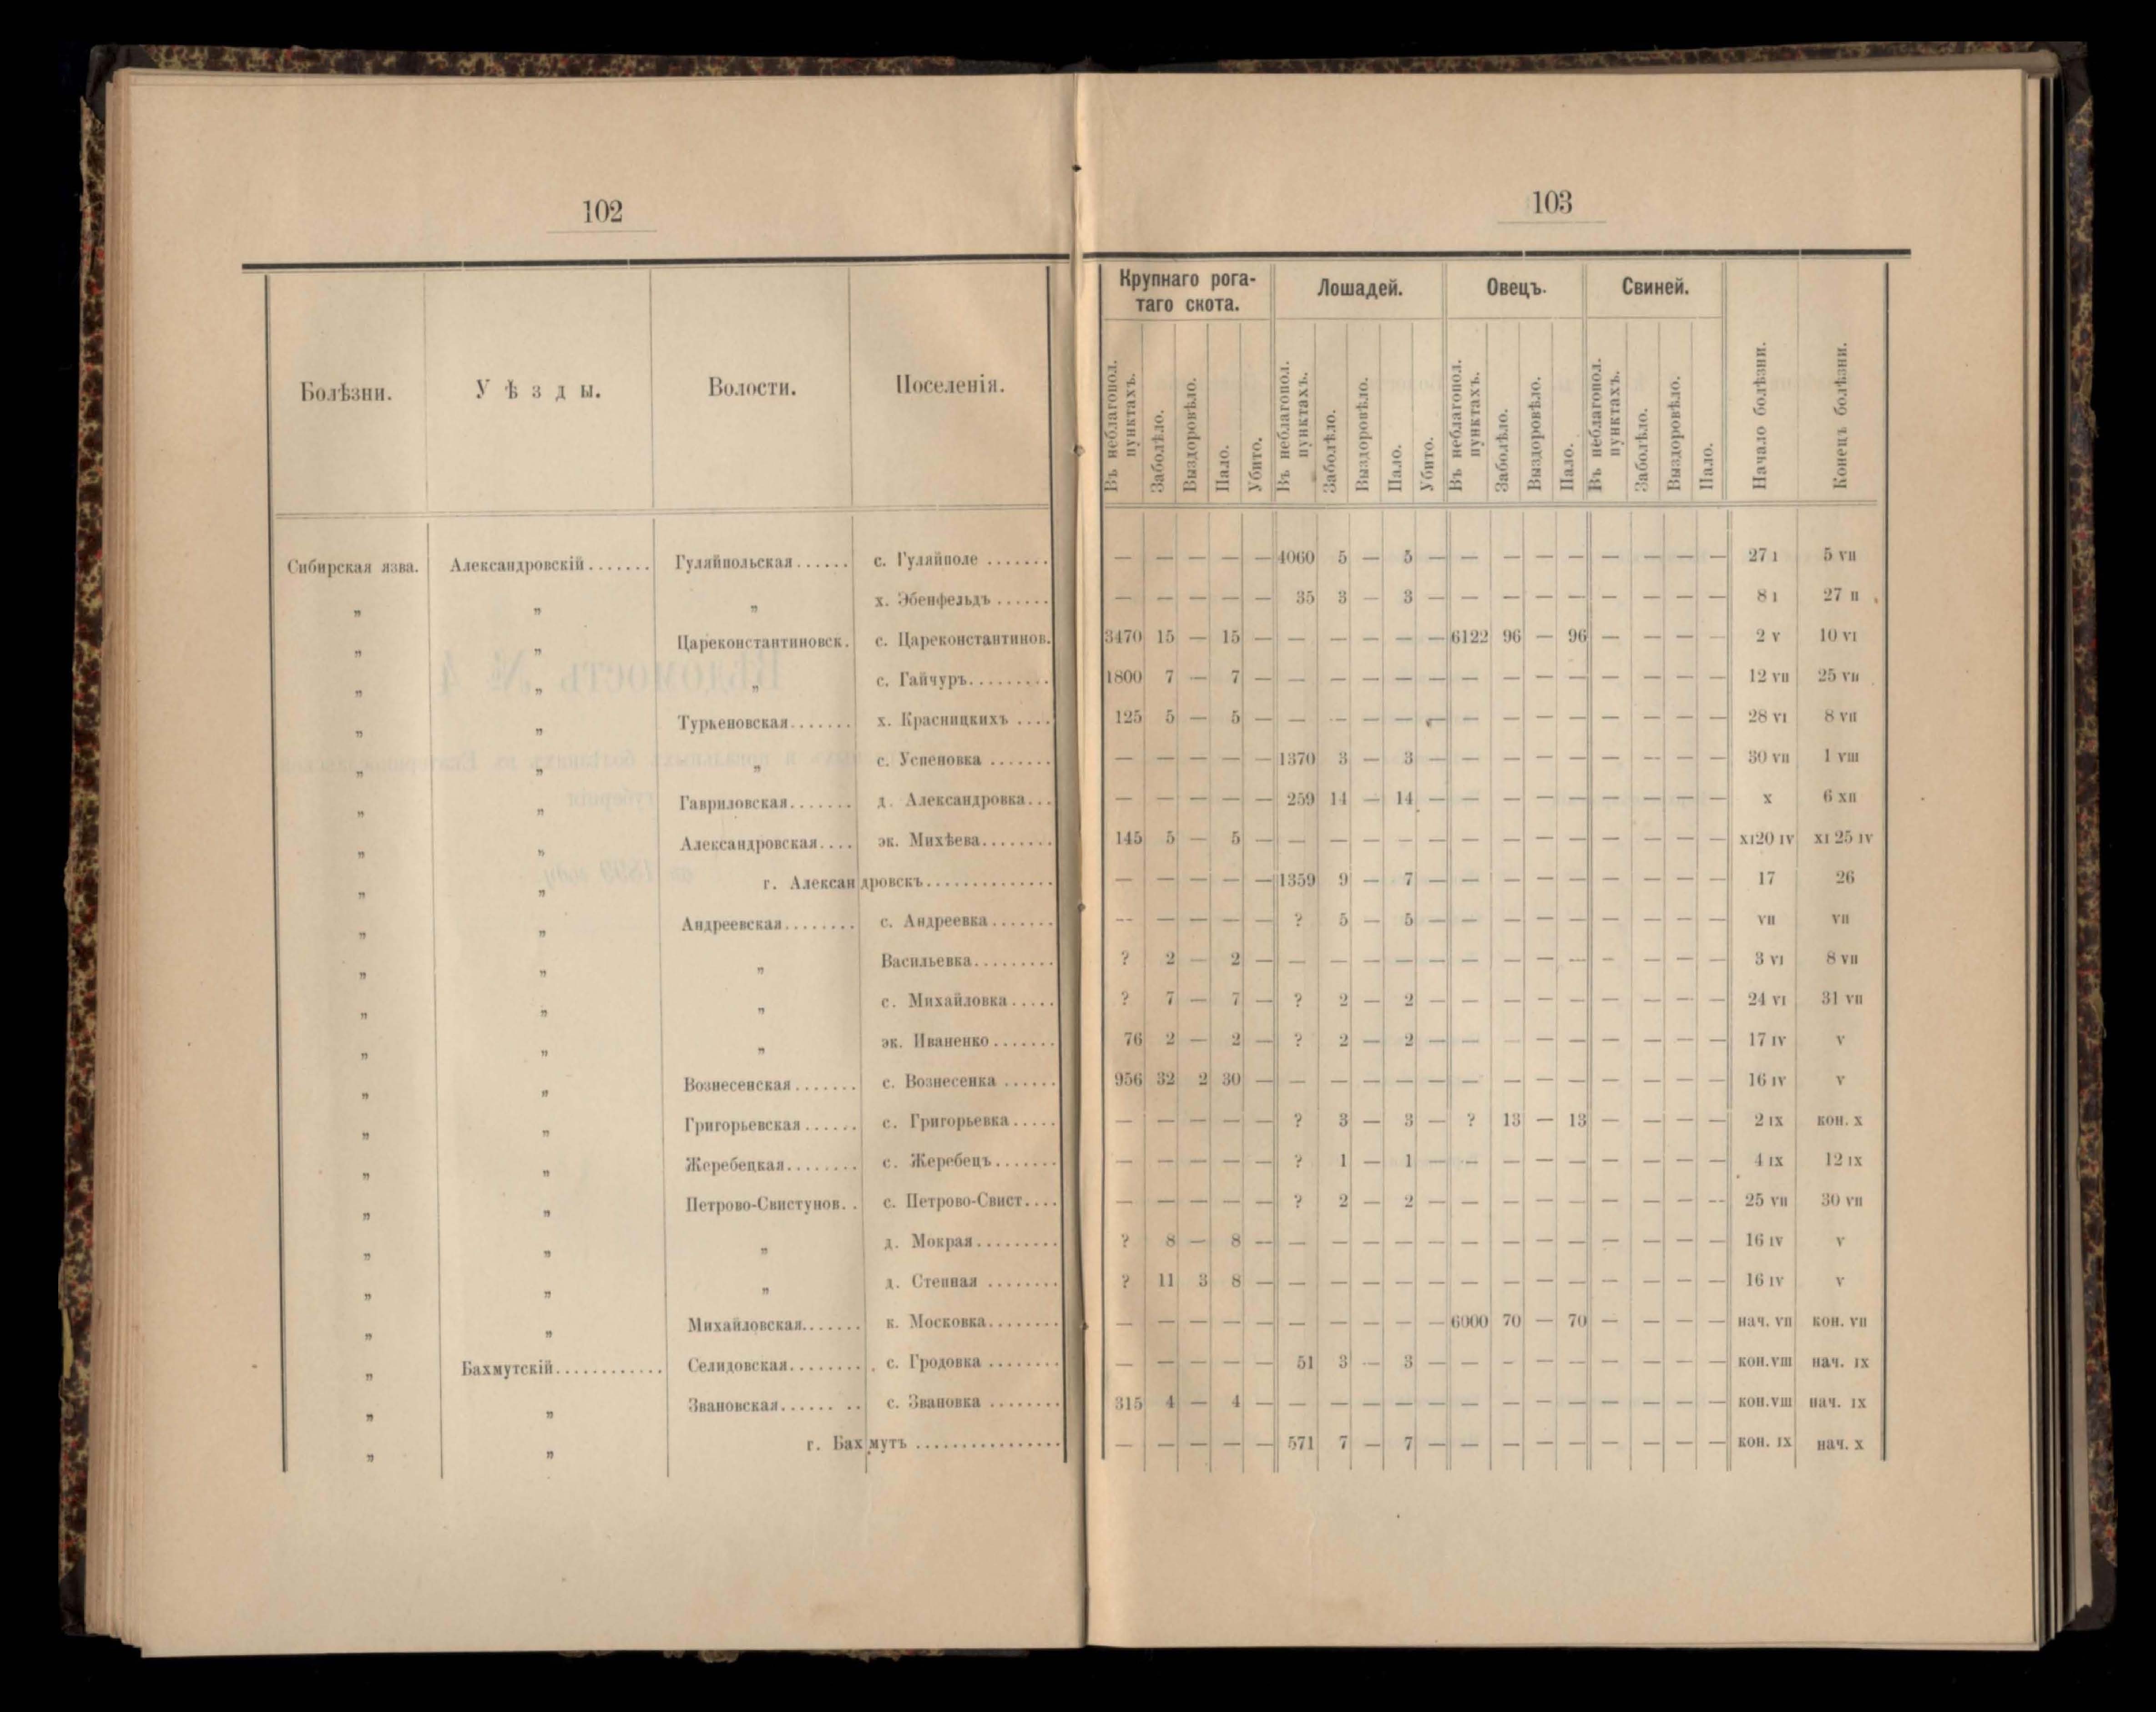 102
Болѣзни. Уѣзды. Волости. Поселенія.
Сибирская язва. Александровскій....... Гуляйпольская...... с. Гуляйполе .......
„ „ „ х. Эбенфельдъ ......
„ „ Цареконстантиновск. с. Цареконстантинов.
„ „ „ с. Гайчуръ.........
„ „ Туркеновская....... х. Красницкихъ ....
„ „ „ с. Успеновка .......
„ „ Гавриловская....... д. Александровка...
„ „ Александровская.... эк. Михѣева........
„ „ г. Александровскъ..............
„ „ Андреевская........ с. Андреевка.......
„ „ „ Васильевка.........
„ „ „ с. Михайловка.....
„ „ „ эк. Иваненко.......
„ „ Вознесенская....... с. Вознесенка ......
„ „ Григорьевская...... с. Григорьевка.....
„ „ Жеребецкая........ с. Жеребецъ.......
„ „ Петрово-Свистунов.. с. Петрово-Свист....
„ „ „ д. Мокрая.........
„ „ „ д. Степная ........
„ „ Михайловская....... к. Московка........
„ Бахмутскій............ Селидовская........ с. Гродовка ........
„ „ Звановская...... .. с. Звановка ........
„ „ г. Бахмутъ ................
103
Крупнаго рога-
таго скота. Лошадей. Овецъ. Свиней.
Въ неблагопол. пунктахъ. Заболѣло. Выздоровѣло. Пало. Убито. Въ неблагопол. пунктахъ. Заболѣло. Выздоровѣло. Пало. Убито. Въ неблагопол. пунктахъ. Заболѣло. Выздоровѣло. Пало. Въ неблагопол. пунктахъ. Заболѣло. Выздоровѣло. Пало. Начало болѣзни. Конецъ болѣзни.
— — — — — 4060 5 — 5 — — — — — — — — — 27 I 5 VII
— — — — — 35 3 — 3 — — — — — — — — — 8 I 27 II
3470 15 — 15 — — — — — — 6122 96 — 96 — — — — 2 V 10 VI
1800 7 — 7 — — — — — — — — — — — — — — 12 VII 25 VII
125 5 — 5 — — — — — — — — — — — — — — 28 VI 8 VII
— — — — — 1370 3 — 3 — — — — — — — — — 30 VII 1 VIII
— — — — — 259 14 — 14 — — — — — — — — — X 6 XII
145 5 — 5 — — — — — — — — — — — — — — XI20 IV XI 25 IV
— — — — — 1359 9 — 7 — — — — — — — — — 17 26
— — — — — ? 5 — 5 — — — — — — — — — VII VII
? 2 — 2 — — — — — — — — — — — — — — 3 VI 8 VII
? 7 — 7 — ? 2 — 2 — — — — — — — — — 24 VI 31 VII
76 2 — 2 — ? 2 — 2 — — — — — — — — — 17 IV V
956 32 2 30 — — — — — — — — — — — — — — 16 IV V
— — — — — ? 3 — 3 — ? 13 — 13 — — — — 2 IX кон. X
— — — — — ? 1 — 1 — — — — — — — — — 4 IX 12 IX
— — — — — ? 2 — 2 — — — — — — — — — 25 VII 30 VII
? 8 — 8 — — — — — — — — — — — — — — 16 IV V
? 11 3 8 — — — — — — — — — — — — — — 16 IV V
— — — — — — — — — — 6000 70 — 70 — — — — нач. VII кон. VII
— — — — — 51 3 — 3 — — — — — — — — — кон. VIII нач. IX
315 4 — 4 — — — — — — — — — — — — — — кон. VIII нач. IX
— — — — — 571 7 — 7 — — — — — — — — — кон. IX нач. X